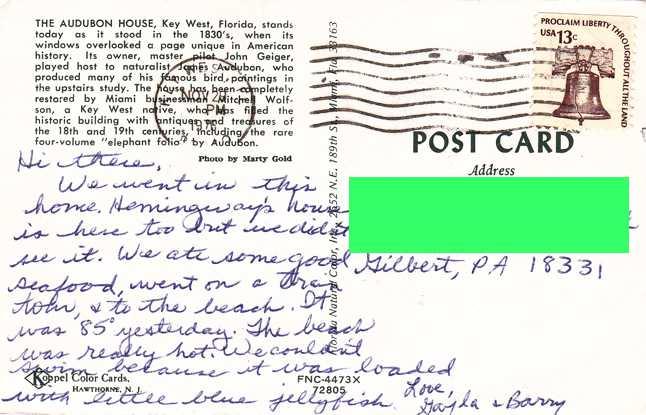 THE AUDUBON HOUSE, Key West, Florida, stands
today as it stood in the 1830's, when its
windows overlooked a page unique in American
history. Its owner, master pilot John Geiger,
played host to naturalist James Audubon, who
produced many of his famous bird paintings in
the upstairs study. The house has been completely
restored by Miami businessman Mitchell Wolf-
son, a Key West native, who has filled the
historic building with antiques and treasures of
the 18th and 19th centuries, including the rare
four-volume "elephant folio" by Audubon.
Photo by Marty Gold
Hi there,
We went in this
home. Hemingway's house
is here too but we didn't
see it. We ate some good
seafood, went on a train
tour, & to the beach. It
was 85° yesterday. The beach
was really hot. We couldn't
swim because it was loaded
with little blue jellyfish.
Love,
Gayla & Barry
Koppel Color Cards,
HAWTHORNE, N. J.
FNC-4473X
72805
Florida Natural Color, Inc., 2652 N.E. 189th St., Miami, Fla. 33163
NOV 20
PM
PROCLAIM LIBERTY THROUGHOUT ALL THE LAND
USA 13c
POST CARD
Address
Gilbert, PA 18331